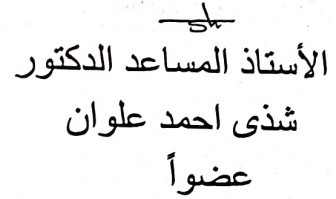 الأستاذ المساعد الدكتور
شذى احمد علوان
عضواً